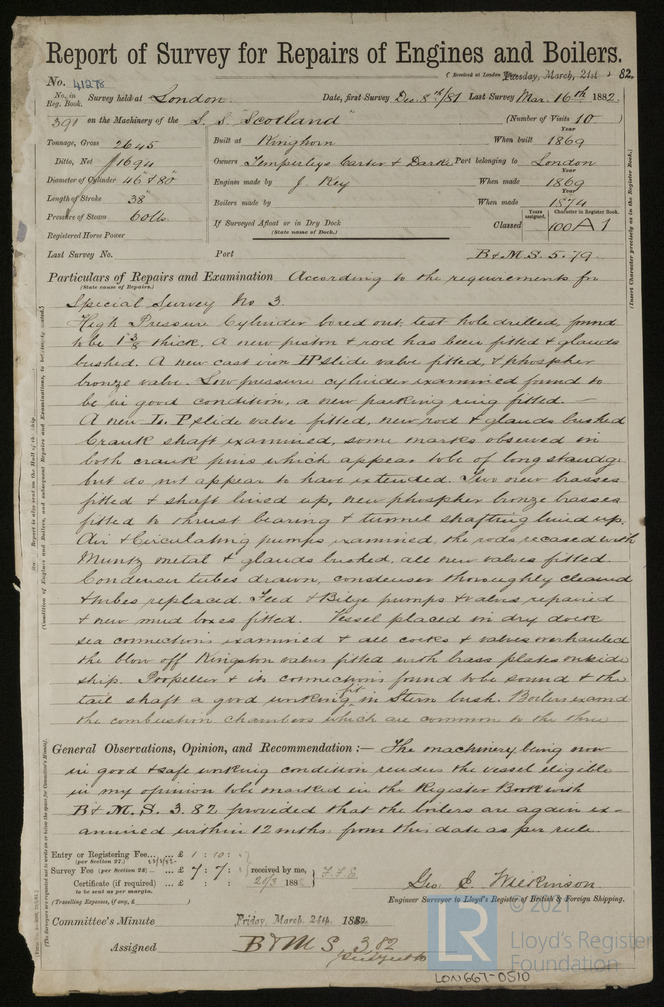 Report of Survey for Repairs of Engines and Boilers.
(Received at London Tuesday, March, 21st 1882.
No. 41278
No. in Reg. Book. Survey held at London. Date, first Survey Dec. 8th/81 Last Survey Mar. 16th 1882.
391 on the Machinery of the S. S. Scotland" (Number of Visits 10)
Tonnage, Gross 2645
Ditto, Net 1694
Diameter of Cylinder 46" & 80"
Length of Stroke 38"
Pressure of Steam 60lbs
Registered Horse Power
Built at Kinghorn When built 1869
Owners Temperleys Carter & Darke Port belonging to London
Engines made by J. Key When made 1869
Boilers made by When made 1874
If Surveyed Afloat or in Dry Dock
(State name of Dock.)
Classed Years assigned. Character in Register Book. 100 A 1
Last Survey No. Port B & M. S. 5. 79.
Particulars of Repairs and Examination According to the requirements for
(State cause of Repairs.)
Special Survey No 3.
High Pressure Cylinder bored out, test hole drilled, found
to be 1 3/8 thick. A new piston & rod has been fitted & glands
bushed. A new cast iron HP slide valve fitted, & phospher
bronze valve. Low pressure cylinder examined found to
be in good condition, a new packing ring fitted. —
A new L. P slide valve fitted, new rod & glands bushed
Crank shaft examined, some marks observed in
both crank pins which appear to be of long standg
but do not appear to have extended. Two new brasses
fitted & shaft lined up, new phospher bronze brasses
fitted to thrust bearing & tunnel shafting lined up.
Air & Circulating pumps examined, the rods recased with
Muntz metal & glands bushed, all new valves fitted.
Condenser tubes drawn, condenser thoroughly cleaned
& tubes replaced. Feed & Bilge pumps & valves repaired
& new mud boxes fitted. Vessel placed in dry dock
sea connections examined & all cocks & valves overhauled
the blow off Kingston valves fitted with brass plates outside
ship. Propeller & its connections found to be sound & the
tail shaft a good working fit in Stern bush. Boilers examd
the combustion chambers which are common to the three
General Observations, Opinion, and Recommendation :— The machinery being now
in good & safe working condition renders the vessel eligible
in my opinion to be marked in the Register Book with
B & M. S. 3. 82 provided that the boilers are again ex-
amined within 12 mths. from this date as per rule.
Entry or Registering Fee... £ 1 : 10 :
(per Section 27.)
Survey Fee (per Section 28) £ 7 : 7 : received by me,
Certificate (if required) £ : : 21/3 188
(to be sent as per margin.
(Travelling Expenses, if any, £ )
Geo. E. Wilkinson.
Engineer Surveyor to Lloyd's Register of British & Foreign Shipping.
Committee's Minute Friday, March, 24th. 1882.
Assigned B & M S 3 82
Subject to
© 2021
LR
Lloyd's Register
Foundation
LON 667-0510